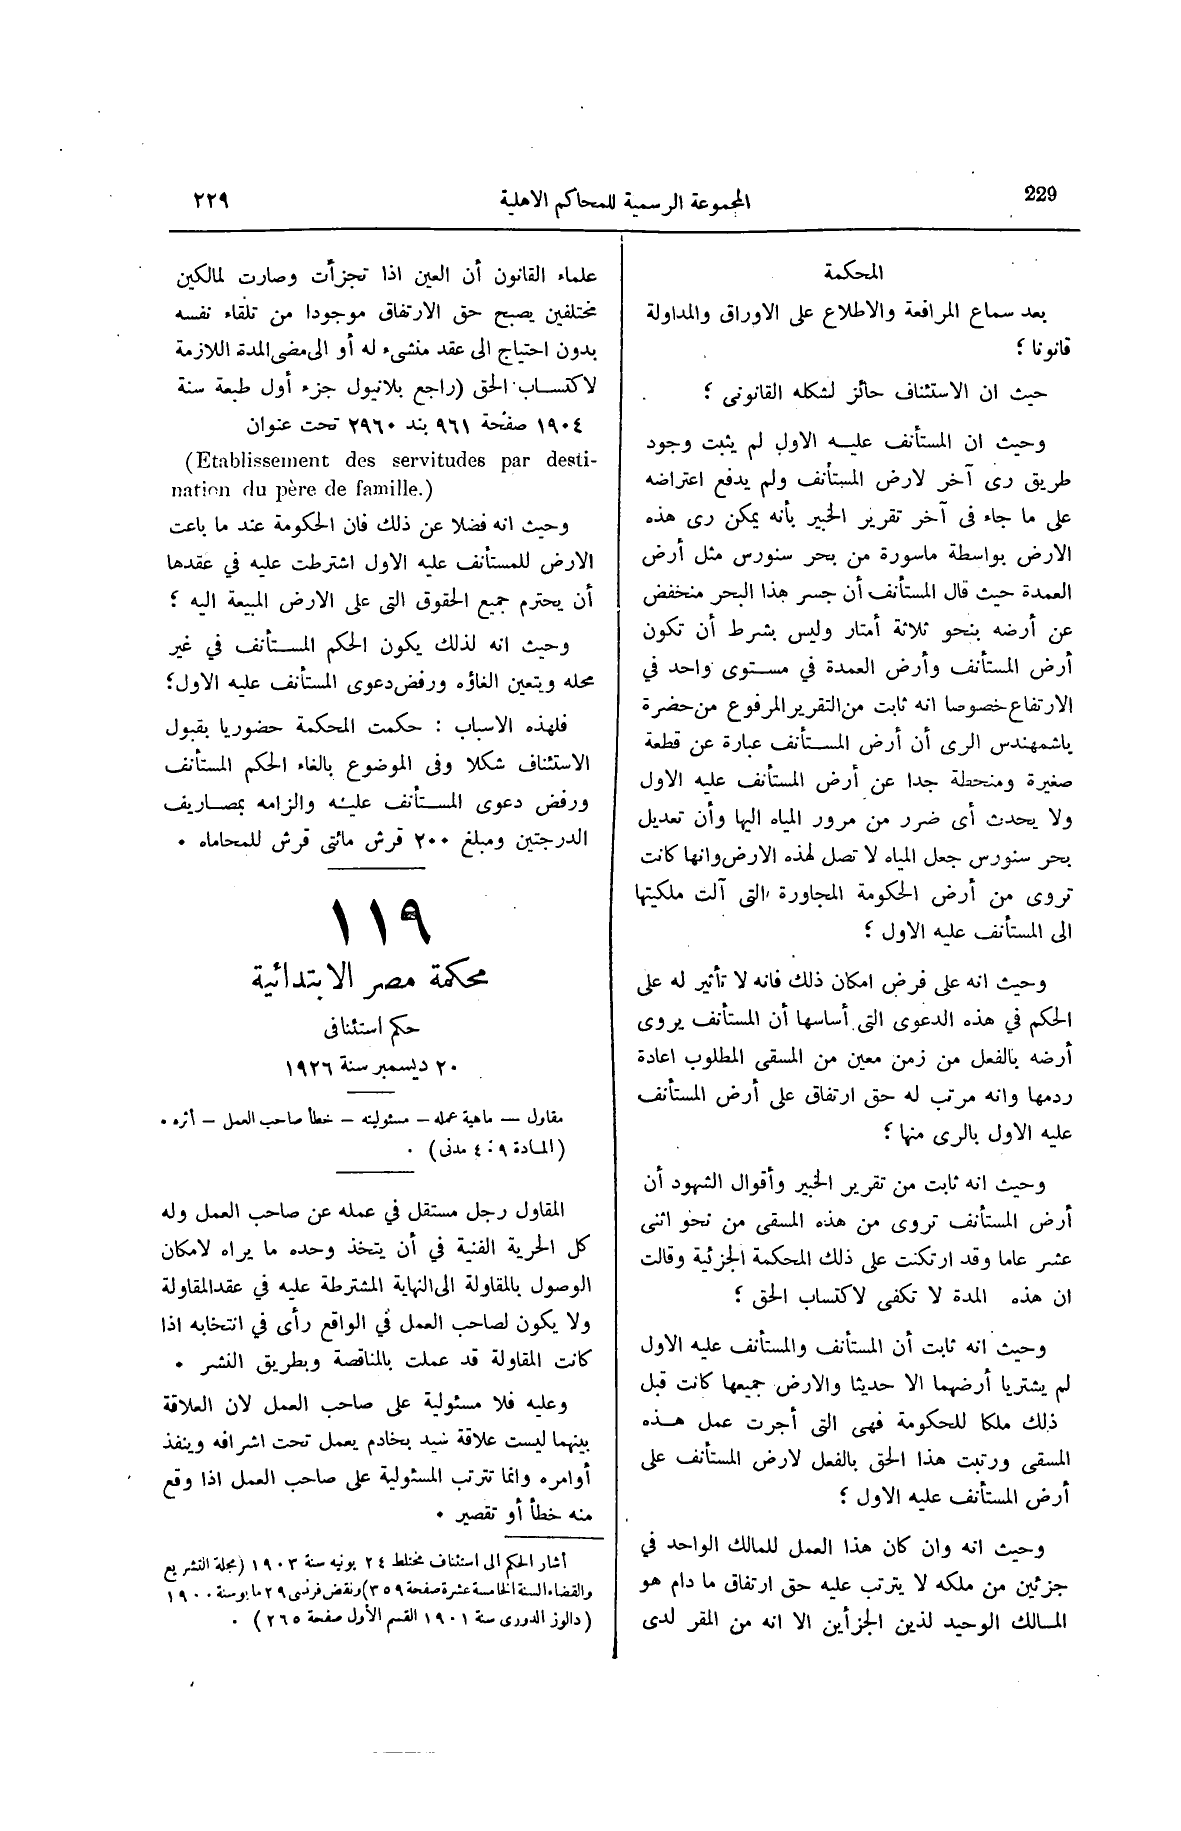 229
المجموعة الرسمية للمحاكم الاهلية
٢٢٩
المحكمة
بعد سماع المرافعة والاطلاع على الاوراق والمداولة
قانونا ؟
حيث ان الاستئناف حائز لشكله القانونى ؟
وحيث ان المستأنف عليه الاول لم يثبت وجود
طريق رى آخر لارض المستأنف ولم يدفع اعتراضه
على ما جاء فى آخر تقرير الخبير بأنه يمكن رى هذه
الارض بواسطة ماسورة من بحر سنورس مثل أرض
العمدة حيث قال المستأنف أن جسر هذا البحر منخفض
عن أرضه بنحو ثلاثة أمتار وليس بشرط أن تكون
أرض المستأنف وأرض العمدة في مستوى واحد في
الارتفاع خصوصا انه ثابت من التقرير المرفوع من حضرة
باشمهندس الرى أن أرض المستأنف عبارة عن قطعة
صغيرة ومنحطة جدا عن أرض المستأنف عليه الاول
ولا يحدث أى ضرر من مرور المياه اليها وأن تعديل
بحر سنورس جعل المياه لا تصل لهذه الارض وانها كانت
تروى من أرض الحكومة المجاورة التى آلت ملكيتها
الى المستأنف عليه الاول ؟
وحيث انه على فرض امكان ذلك فانه لا تأثير له على
الحكم في هذه الدعوى التى أساسها أن المستأنف يروى
أرضه بالفعل من زمن معين من المسقى المطلوب اعادة
ردمها وانه مرتب له حق ارتفاق على أرض المستأنف
عليه الاول بالرى منها ؟
وحيث انه ثابت من تقرير الخبير وأقوال الشهود أن
أرض المستأنف تروى من هذه المسقى من نحو اثنى
عشر عاما وقد ارتكنت على ذلك المحكمة الجزئية وقالت
ان هذه المدة لا تكفى لاكتساب الحق ؟
وحيث انه ثابت أن المستأنف والمستأنف عليه الاول
لم يشتريا أرضهما الا حديثا والارض جميعها كانت قبل
ذلك ملكا للحكومة فهى التى أجرت عمل هذه
المسقى ورتبت هذا الحق بالفعل لارض المستأنف على
أرض المستأنف عليه الاول ؟
وحيث انه وان كان هذا العمل للمالك الواحد في
جزئين من ملكه لا يترتب عليه حق ارتفاق ما دام هو
المالك الوحيد لذين الجزأين الا انه من المقر لدى
علماء القانون أن العين اذا تجزأت وصارت لمالكين
مختلفين يصبح حق الارتفاق موجودا من تلقاء نفسه
بدون احتياج الى عقد منشىء له أو الى مضى المدة اللازمة
لاكتساب الحق (راجع بلانيول جزء أول طبعة سنة
١٩٠٤ صفحة ٩٦١ بند ٢٩٦٠ تحت عنوان
(Etablissement des servitudes par desti-
nation du père de famille.)
وحيث انه فضلا عن ذلك فان الحكومة عند ما باعت
الارض للمستأنف عليه الاول اشترطت عليه في عقدها
أن يحترم جميع الحقوق التى على الارض المبيعة اليه ؟
وحيث انه لذلك يكون الحكم المستأنف في غير
محله ويتعين الغاؤه ورفض دعوى المستأنف عليه الاول؟
فلهذه الاسباب : حكمت المحكمة حضوريا بقبول
الاستئناف شكلا وفى الموضوع بالغاء الحكم المستأنف
ورفض دعوى المستأنف عليه والزامه بمصاريف
الدرجتين ومبلغ ٢٠٠ قرش مائتى قرش للمحاماه .
١١٩
محكمة مصر الابتدائية
حكم استئنافى
٢٠ ديسمبر سنة ١٩٢٦
مقاول — ماهية عمله — مسئوليته — خطأ صاحب العمل — أثره .
(المادة ٤٠٩ مدنى) .
المقاول رجل مستقل في عمله عن صاحب العمل وله
كل الحرية الفنية في أن يتخذ وحده ما يراه لامكان
الوصول بالمقاولة الى النهاية المشترطة عليه في عقد المقاولة
ولا يكون لصاحب العمل في الواقع رأى في انتخابه اذا
كانت المقاولة قد عملت بالمناقصة وبطريق النشر .
وعليه فلا مسئولية على صاحب العمل لان العلاقة
بينهما ليست علاقة سيد بخادم يعمل تحت اشرافه وينفذ
أوامره وانما تترتب المسئولية على صاحب العمل اذا وقع
منه خطأ أو تقصير .
أشار الحكم الى استئناف مختلط ٢٤ يونيه سنة ١٩٠٣ (مجلة التشريع
والقضاء السنة الخامسة عشرة صفحة ٣٥٩) ونقض فرنسى ٢٩ مايو سنة ١٩٠٠
(دالوز الدورى سنة ١٩٠١ القسم الأول صفحة ٢٦٥) .